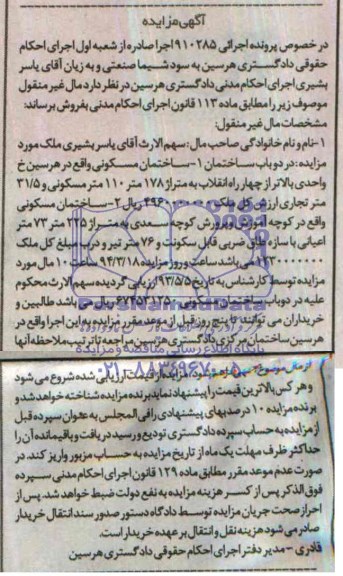 آگهی مزایده
در خصوص پرونده اجرائی ۹۱۰۲۸۵ اجرا صادره از شعبه اول اجرای احکام
حقوقی دادگستری هرسین به سود شیما صنعتی و به زیان آقای یاسر
بشیری اجرای احکام مدنی دادگستری هرسین در نظر دارد مال غیر منقول
موصوف زیر را مطابق ماده ۱۱۳ قانون اجرای احکام مدنی بفروش برساند:
مشخصات مال غیر منقول:
۱-نام و نام خانوادگی صاحب مال: سهم الارث آقای یاسر بشیری ملک مورد
مزایده: در دو باب ساختمان ۱-ساختمان مسکونی واقع در هرسین خ
واحدی بالاتر از چهار راه انقلاب به متراژ ۱۷۸ متر ۱۱۰ متر مسکونی و ۳۱/۵
متر تجاری ارزش کل ملک ریال ۲-ساختمان مسکونی
واقع در کوچه آموزش و پرورش کوچه سعدی به متراژ ۲۲۵ متر ۷۳ متر
اعیانی با سازه طاق ضربی قابل سکونت و ۷۶ متر تیر و درب مبلغ کل ملک
می باشد ساعت و روز مزایده ۹۴/۳/۱۸ ساعت ۱۰ مال مورد
مزایده توسط کارشناس به تاریخ ۹۳/۵/۵ ارزیابی گردیده سهم الارث محکوم
علیه در دو باب ساختمان مسکونی ریال می باشد طالبین و
خریداران می توانند تا پنج روز قبل از موعد مقرر مزایده به این اجرا واقع در
هرسین ساختمان مرکزی دادگستری هرسین مراجعه تا ترتیب ملاحظه آنها
پایگاه اطلاع رسانی مناقصه و مزایده
ParsNamadData
۰۲۱-۸۸۳۴۹۶۷۰-۵
از مال موضوع مزایده از قیمت ارزیابی شده شروع می شود
و هر کس بالاترین قیمت را پیشنهاد نماید برنده مزایده شناخته خواهد شد و
برنده مزایده ۱۰ درصد بهای پیشنهادی را فی المجلس به عنوان سپرده قبل
از مزایده به حساب سپرده دادگستری تودیع و رسید دریافت و باقیمانده آن را
حداکثر ظرف مهلت یک ماه از تاریخ مزایده به حساب مزبور واریز کند. در
صورت عدم موعد مقرر مطابق ماده ۱۲۹ قانون اجرای احکام مدنی سپرده
فوق الذکر پس از کسر هزینه مزایده به نفع دولت ضبط خواهد شد. پس از
احراز صحت جریان مزایده توسط دادگاه دستور صدور سند انتقال خریدار
صادر می شود هزینه نقل و انتقال بر عهده خریدار است.
قادری - مدیر دفتر اجرای احکام حقوقی دادگستری هرسین